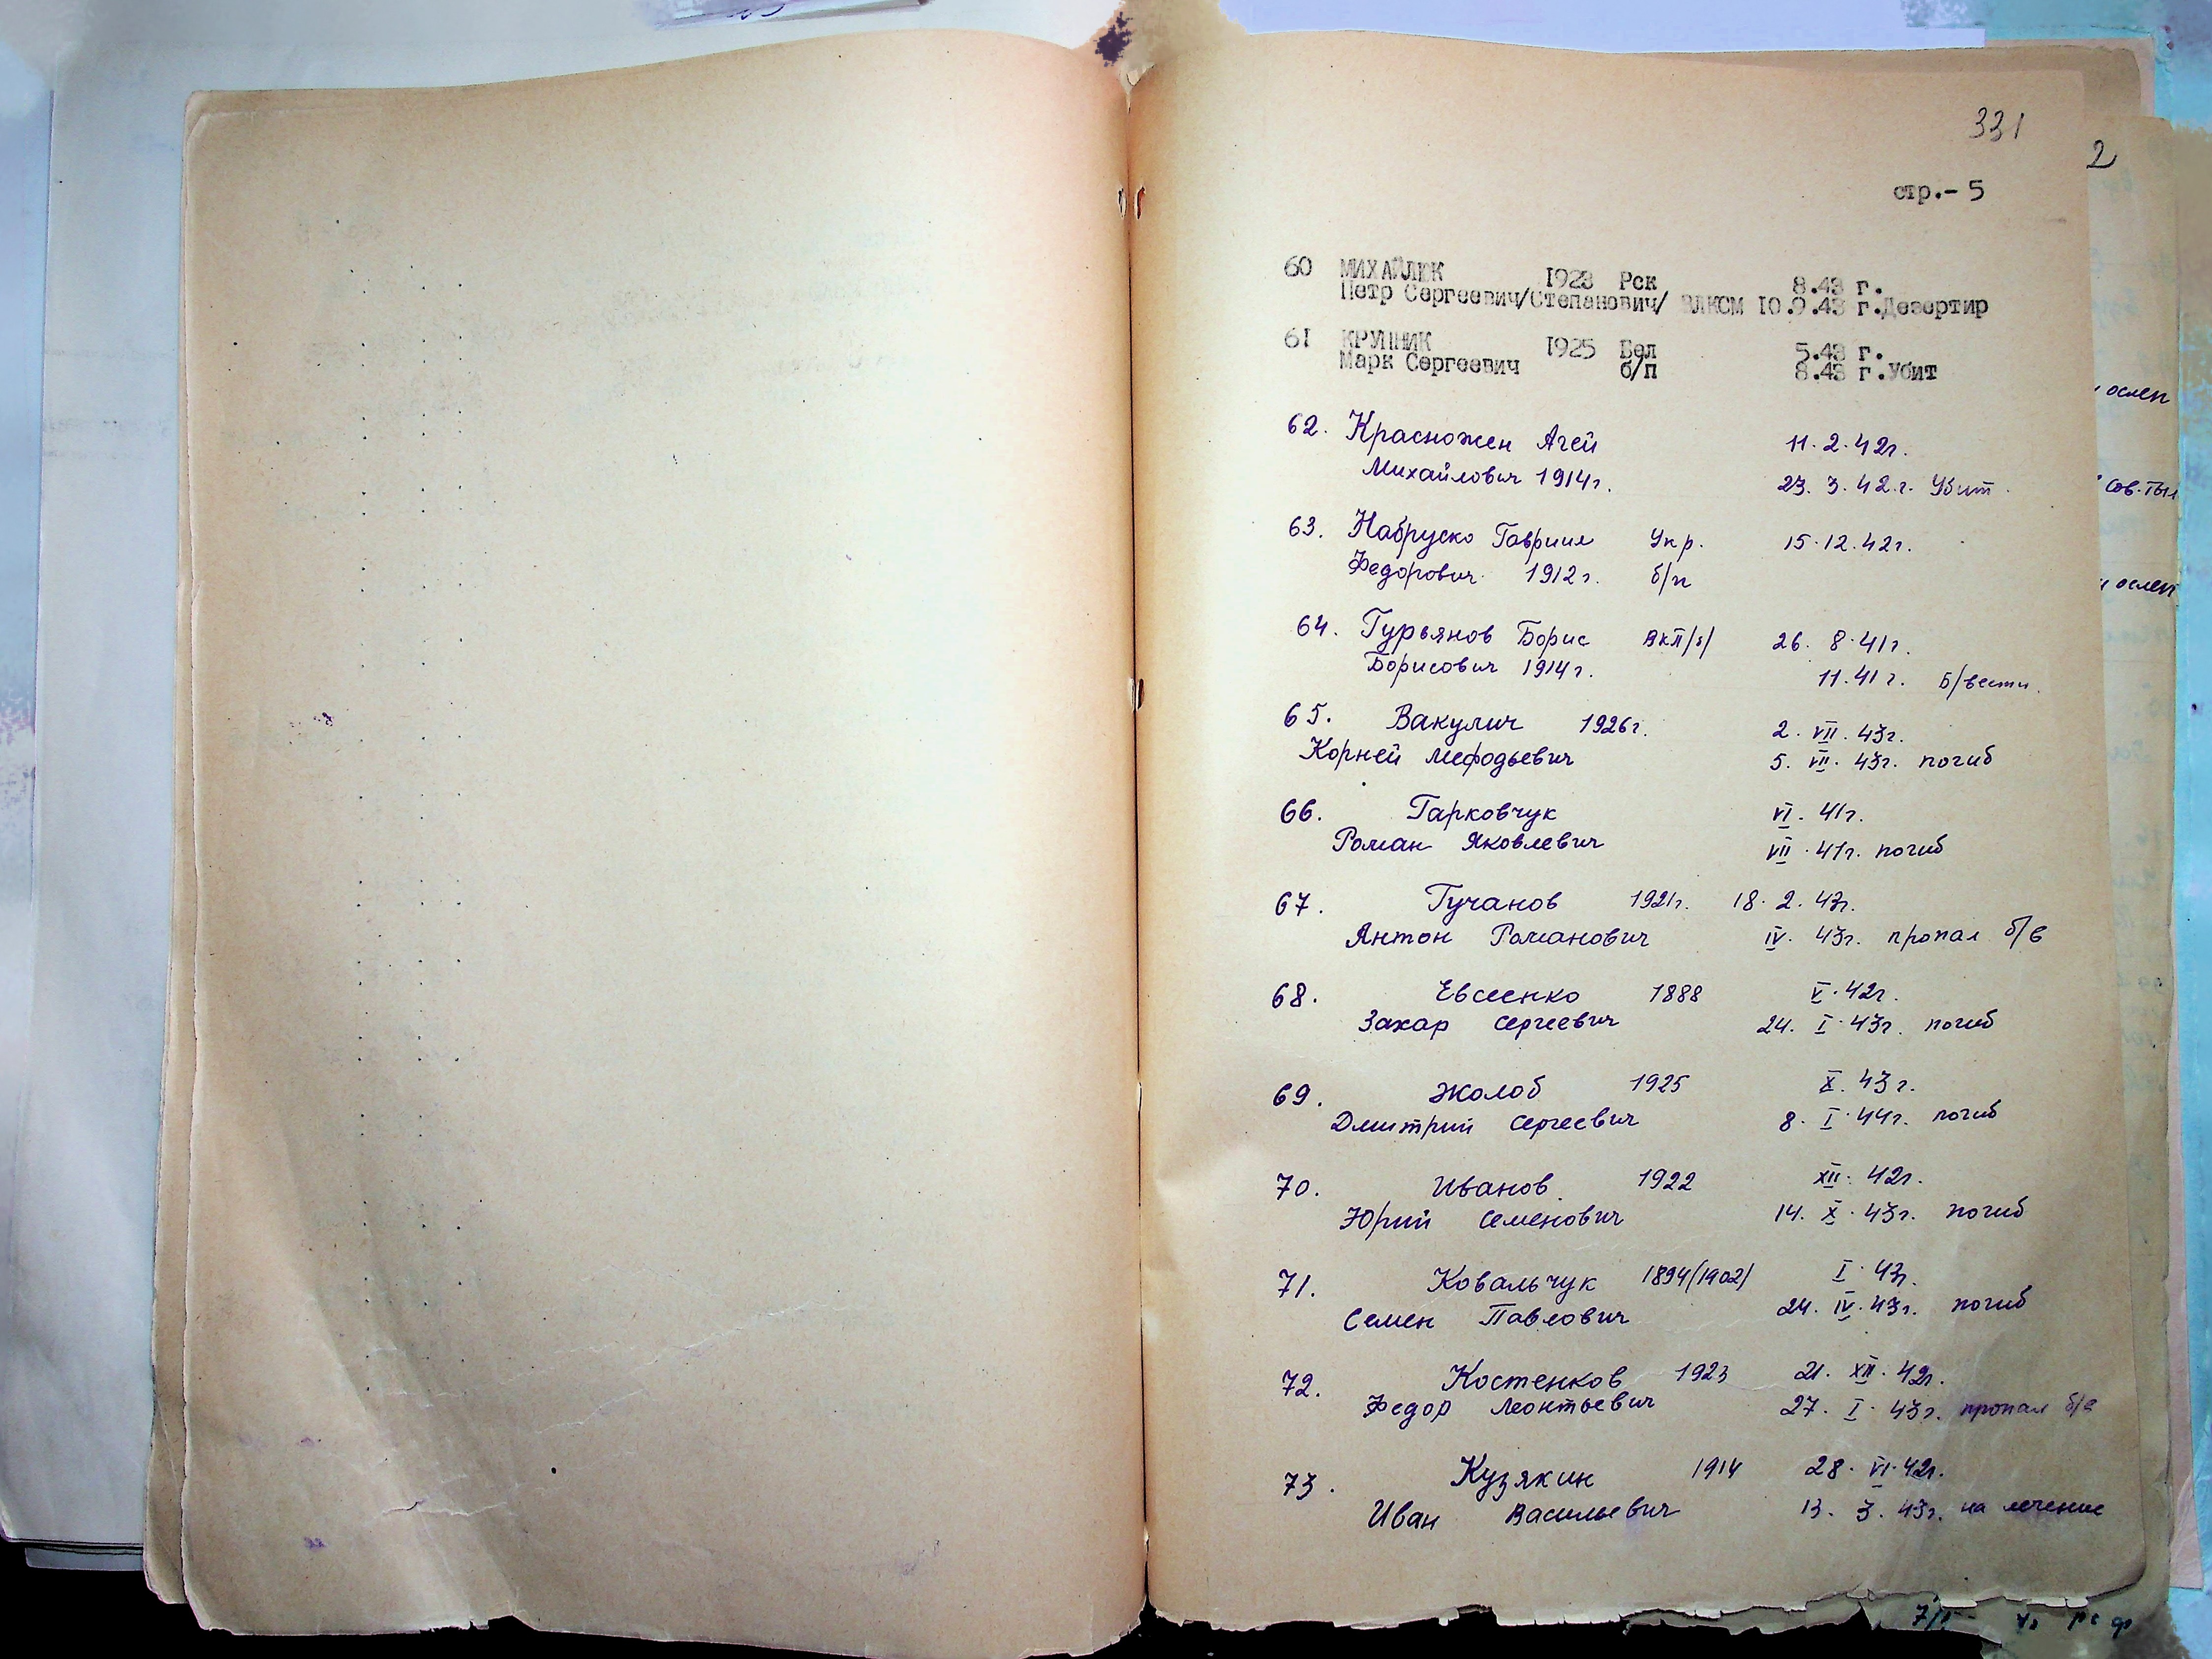 331
2
стр.- 5
60 МИХАЙЛЮК 1923 Рск 8.43 г.
Петр Сергеевич/Степанович/ ВЛКСМ 10.9.43 г.Дезертир
61 КРУПНИК 1925 Бел 5.43 г.
Марк Сергеевич б/п 8.43 г.Убит
62. Красножен Агей 11.2.42г.
Михайлович 1914г. 23.3.42.г. Убит.
63. Набруско Гавриил Укр. 15.12.42г.
Федорович 1912г. б/п
64. Гурьянов Борис ВКП/б/ 26.8.41г.
Борисович 1914г. 11.41г. Б/вести.
65. Вакулич 1926г. 2.VII.43г.
Корней Мефодьевич 5.VII.43г. погиб
66. Гарковчук VI.41г.
Роман Яковлевич VII.41г. погиб
67. Гучанов 1921г. 18.2.43г.
Антон Романович IV.43г. пропал б/в
68. Евсеенко 1888 V.42г.
Захар Сергеевич 24.I.43г. погиб
69. Жолоб 1925 X.43г.
Дмитрий Сергеевич 8.I.44г. погиб
70. Иванов 1922 XII.42г.
Юрий Семенович 14.X.43г. погиб
71. Ковальчук 1894/1902/ I.43г.
Семен Павлович 24.IV.43г. погиб
72. Костенков 1923 21.XII.42г.
Федор Леонтьевич 27.I.43г. пропал б/в
73. Кузякин 1914 28.VI.42г.
Иван Васильевич 13.3.43г. на лечение
ослеп
сов.тыл
ослеп